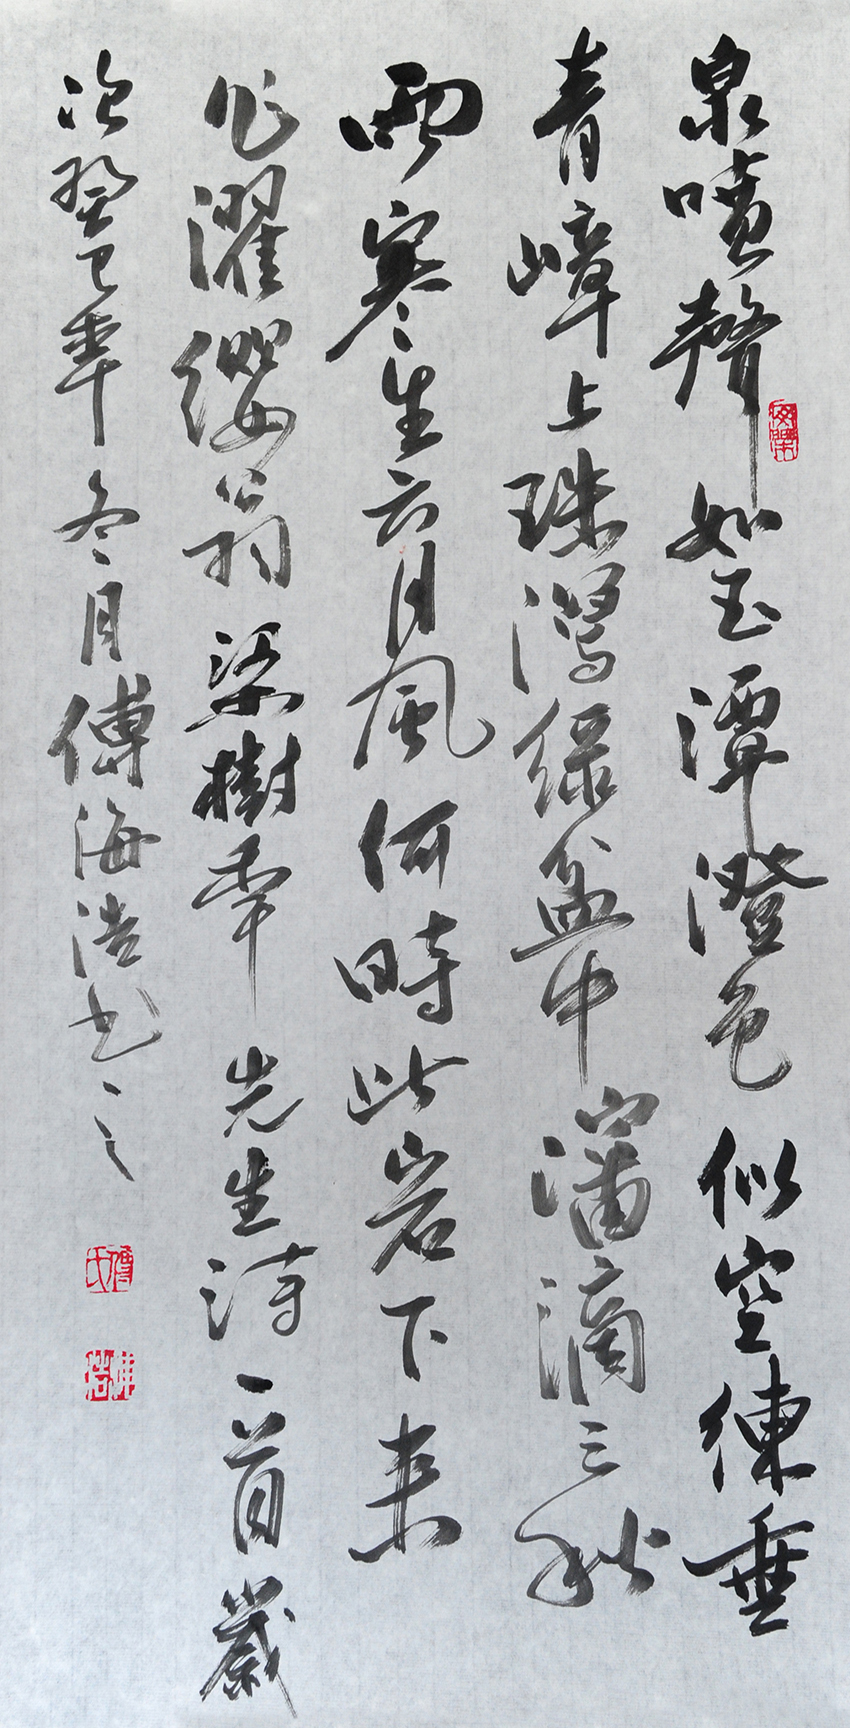 泉噴聲如玉潭澄色似空練垂
青嶂上珠瀉綠盆中溜滴三秋
雨寒生六月風何時此岩下来
作濯纓翁梁樹年先生詩一首歲
次癸巳年冬月傅海浩书之
傅氏
海浩